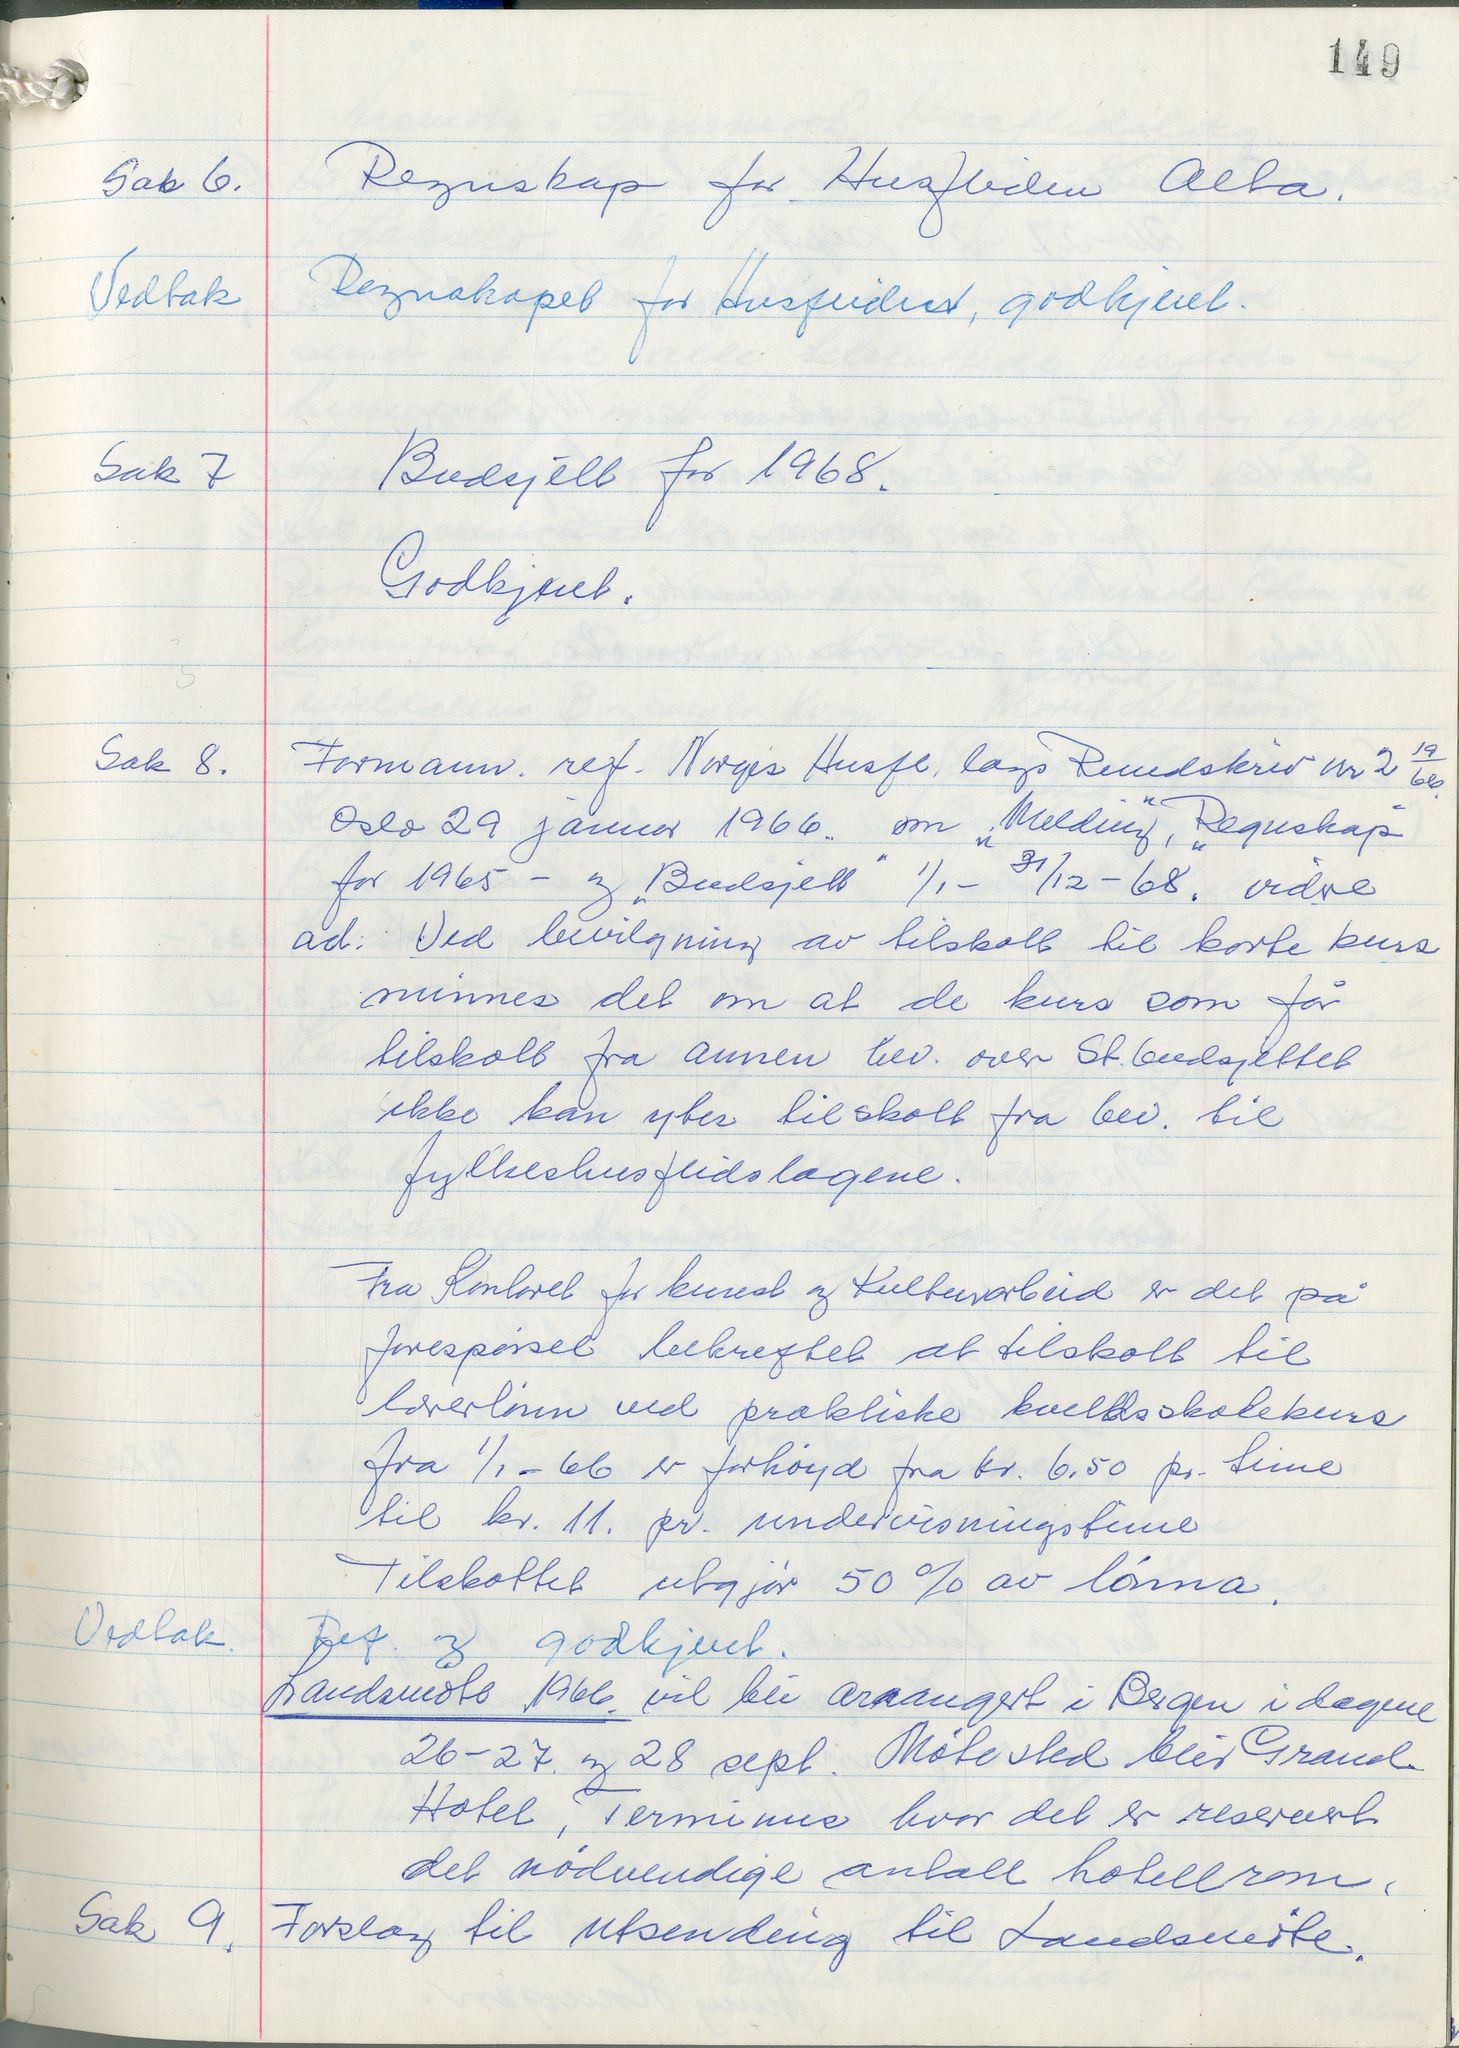 149
Sak 6. Regnskap for Husfliden Alta.
Vedtak Regnskapet for Husfliden, godkjent.
Sak 7 Budsjett for 1968.
Godkjent.
Sak 8. Formann. ref. Norges Husfl. lags Rundskriv nr 2 19/66.
Oslo 29 januar 1966. om „Melding", „Regnskap"
for 1965 - og „Budsjett" 1/1 - 31/12 - 68. vidre
ad: Ved bevilgning av tilskott til korte kurs
minnes det om at de kurs som får
tilskott fra annen bev. over St. budsjettet
ikke kan ytes tilskott fra bev. til
fylkeshusflidslagene.
Fra Kontoret for kunst og Kulturarbeid er det på
forespørsel bekreftet at tilskott til
lærerlønn ved praktiske kveldsskolekurs
fra 1/1 - 66 er forhøyd fra kr. 6.50 pr. time
til kr. 11. pr. undervisningstime
Tilskottet utgjør 50 % av lønna.
Vedtak. Ref. og godkjent.
Landsmøte 1966. vil bli arrangert i Bergen i dagene
26-27. og 28 sept. Møtested blir Grand
Hotel, Terminus hvor det er reservert
det nødvendige antall hotellrom.
Sak 9. Forslag til utsending til Landsmøte.